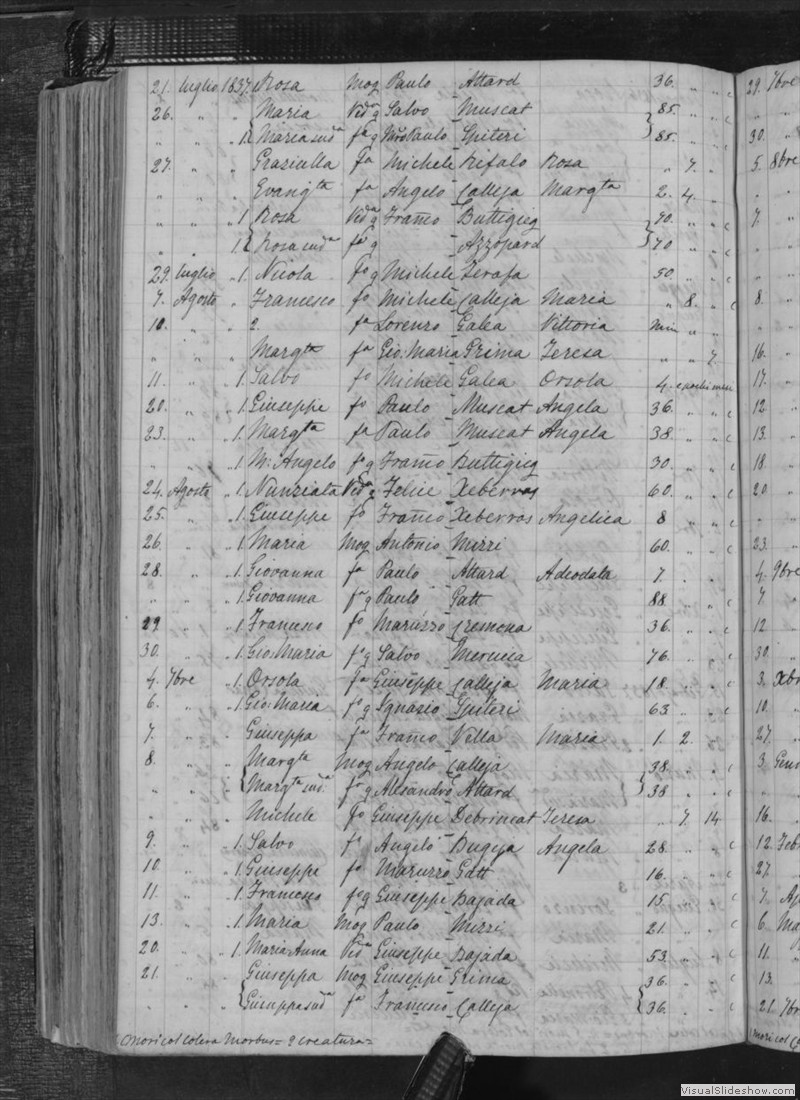 21. luglio 1837. Rosa Mog Paulo Attard 36. " " c
26. " " Maria Vid.a q Salvo Muscat 85. " " c
" " 1 Maria sud.a f.a q M.ro Paulo Spiteri 85. " " c
27. " " Graziulla f.a Michele Refalo Rosa " 7. "
" " " Evang.ta f.a Angelo Calleja Marg.ta 2. 4. "
" " " 1 Rosa Vid.a q Fran.co Buttigieg 70. " " c
" " 1 Rosa sud.a f.a q Azzopard 70 " " c
29. luglio " 1. Nicola f.o q Michele Zerafa 50 " " c
7. Agosto " Francesco f.o Michele Calleja Maria " 8. " c
10. " " 2. f.a Lorenzo Galea Vittoria min " "
" " " Marg.ta f.a Gio: Maria Grima Teresa " " 7
11. " " 1. Salvo f.o Michele Galea Orsola 4. e pochi mesi
20. " " 1. Giuseppe f.o Paulo Muscat Angela 36. " " c
23. " " 1. Marg.ta f.a Paulo Muscat Angela 38. " " c
" " 1 M: Angelo f.o q Fran.co Buttigieg 30. " " c
24. Agosto " 1. Nunziata Vid.a q Felice Xeberras 60. " " c
25. " " 1. Giuseppe f.o Fran.co Xeberras Angelica 8 " " c
26. " " 1. Maria Mog Antonio Mizzi 60. " " c
28. " " 1. Giovanna f.a Paulo Attard Adeodata 7. " " c
" " " 1. Giovanna f.a q Paulo Gatt 88. " " c
29. " " 1. Francesco f.o Maruzzo Cremona 36. " " c
30. " " 1. Gio: Maria f.o q Salvo Mercieca 76. " " c
4. 7bre " 1. Orsola f.a Giuseppe Calleja Maria 18. " " c
6. " " 1. Gio: Maria f.o q Ignazio Spiteri 63. " " c
7. " " Giuseppa f.a Fran.co Vella Maria 1. 2. "
8. " " Marg.ta Mog Angelo Calleja 38. " " c
" " " Marg.ta sud.a f.a q Alesandro Attard 38 " " c
" " " Michele f.o Giuseppe Debrincat Teresa " 7 14
9. " " 1. Salvo f.o Angelo Bugeja Angela 28. " " c
10. " " 1. Giuseppe f.o Maruzzo Gatt 16. " " c
11. " " 1. Francesco f.o q Giuseppe Bajada 15. " " c
13. " " 1. Maria Mog Paulo Mizzi 21. " " c
20. " " 1. Maria Anna Vid.a Giuseppe Bajada 53. " " c
21. " " Giuseppa Mog Giuseppe Grima 36. " " c
" " " Giuseppa sud.a f.a Francesco Calleja 36. " " c
1 Morì col Colera Morbus = 2 Creatura =
29. 7bre
30.
5. 8bre
7.
8.
16.
17.
12.
13.
18.
20
23.
4. 9bre
7
12
30.
3. Xbr
10.
27.
3. Gen
16.
12. Feb
27.
7. Ap
6. Ma
11.
13.
21. 7br
VisualSlideshow.com